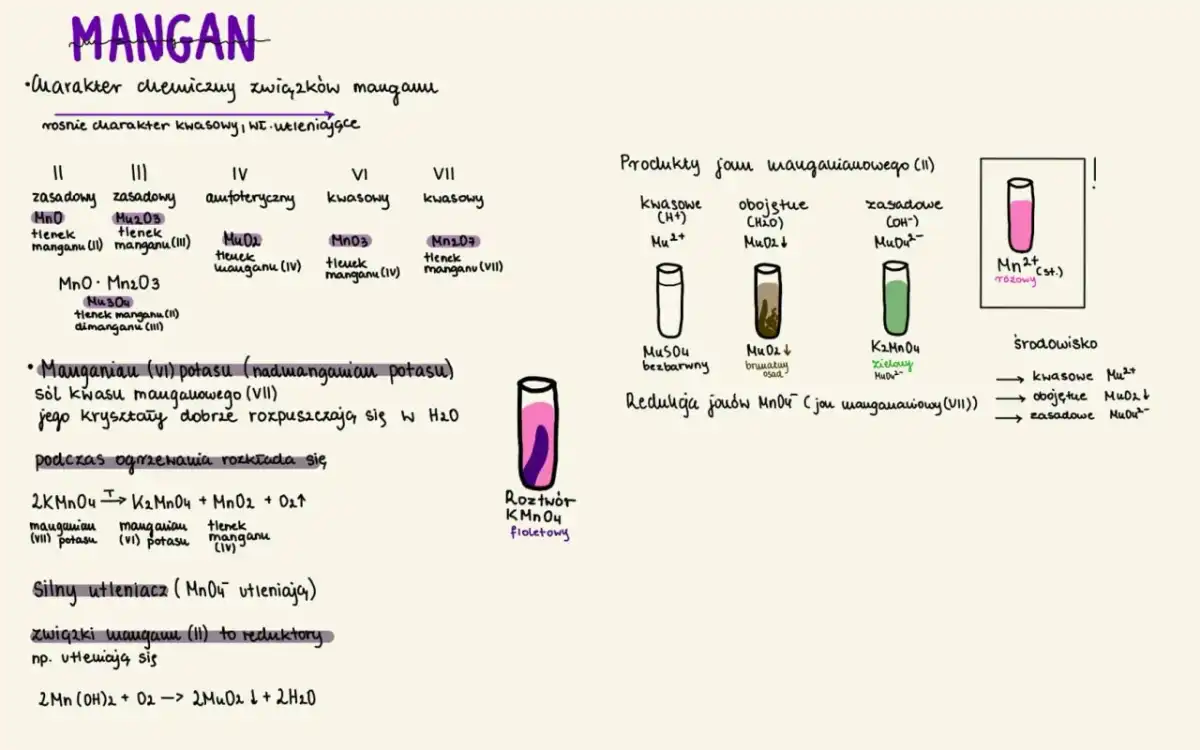 MANGAN
•Charakter chemiczny związków manganu
rośnie charakter kwasowy, wł. utleniające
II III IV VI VII
zasadowy zasadowy amfoteryczny kwasowy kwasowy
MnO Mn2O3 MnO2 MnO3 Mn2O7
tlenek manganu (II)
tlenek manganu (III)
tlenek manganu (IV)
tlenek manganu (IV)
tlenek manganu (VII)
MnO · Mn2O3
Mn3O4
tlenek manganu (II)
dimanganu (III)
• Manganian (VI) potasu (nadmanganian potasu)
sól kwasu manganowego (VII)
jego kryształy dobrze rozpuszczają się w H2O
podczas ogrzewania rozkłada się
2KMnO4 T→ K2MnO4 + MnO2 + O2↑
manganian (VII) potasu
manganian (VI) potasu
tlenek manganu (IV)
Silny utleniacz (MnO4⁻ utleniają)
związki manganu (II) to reduktory
np. utleniają się
2Mn(OH)2 + O2 —> 2MnO2↓ + 2H2O
Roztwór
KMnO4
fioletowy
Produkty jonu manganianowego (II)
kwasowe obojętne zasadowe
(H+) (H2O) (OH-)
Mn²⁺ MnO2↓ MnO4²⁻
MnSO4
bezbarwny
MnO2↓
brunatny
osad
K2MnO4
zielony
MnO4²⁻
Redukcja jonów MnO4⁻ (jon manganianowy(VII))
!
Mn²⁺(st.)
różowy
środowisko
→ kwasowe Mn²⁺
→ obojętne MnO2↓
→ zasadowe MnO4²⁻